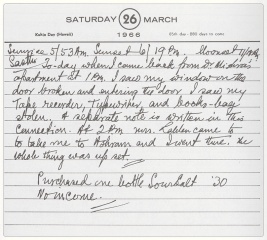 SATURDAY 26 MARCH
1966
Sunrise 5/53 A.M. Sunset 6/19 P.M. Moonset
To-day when I came back from Dr. Misra's
apartment at 1 P.M. I saw my window on the
door broken and entering the door I saw my
Tape recorder, Typewriter and books-bags
stolen. A separate note is written in this
connection. At 2 P.M. Mrs. came to
to take me to Ashram and I went there. The
whole thing was up set.
Purchased one bottle Sourbalt '30
No income.